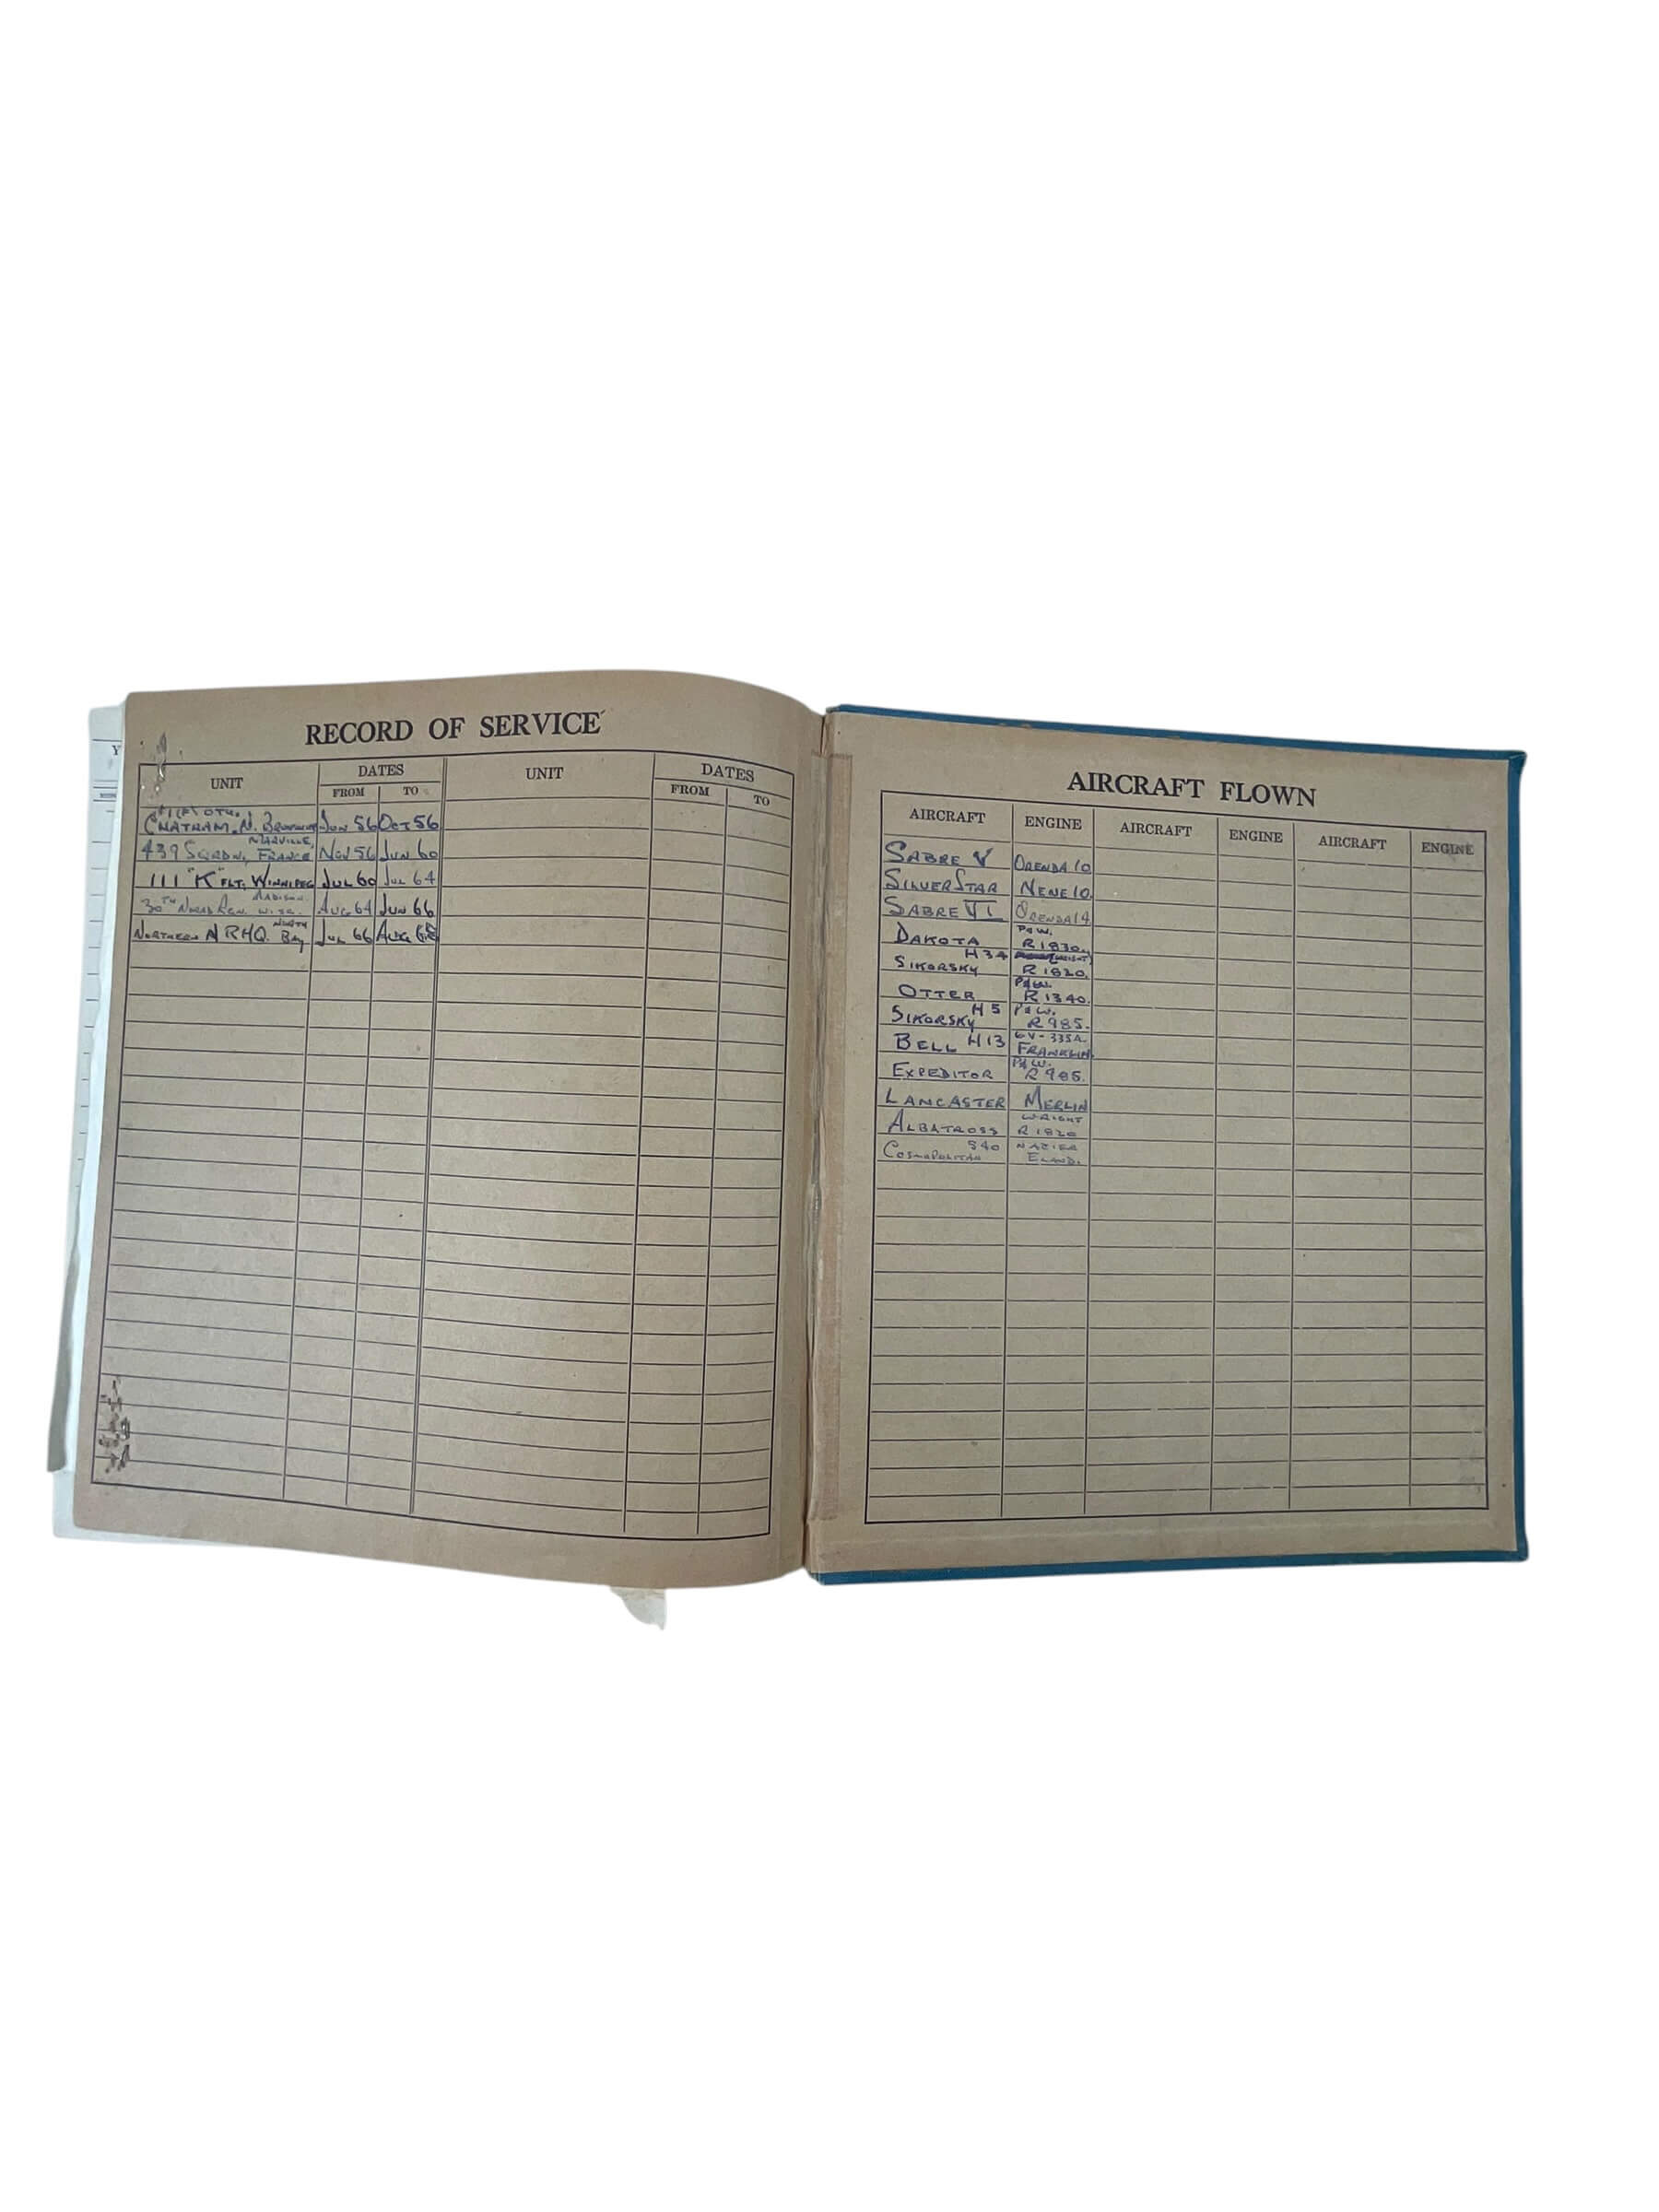 RECORD OF SERVICE
UNIT DATES UNIT DATES
FROM TO FROM TO
#1(F) OTU,
CHATHAM, N. BRUNSWICK JUN 56 OCT 56
MARVILLE,
439 SQRDN, FRANCE NOV 56 JUN 60
111 "K" FLT, WINNIPEG JUL 60 JUL 64
MADISON
30TH NORAD RGN. WISC. AUG 64 JUN 66
NORTH
NORTHERN NRHQ. BAY JUL 66 AUG
AIRCRAFT FLOWN
AIRCRAFT ENGINE AIRCRAFT ENGINE AIRCRAFT ENGINE
SABRE V ORENDA 10
SILVER STAR NENE 10
SABRE VI ORENDA 14
P&W.
DAKOTA R1830
H34 WRIGHT
SIKORSKY R1820.
P&W.
OTTER R1340.
H5 P&W.
SIKORSKY R985.
BELL H13 6V-335A.
FRANKLIN
P&W.
EXPEDITOR R985.
LANCASTER MERLIN
WRIGHT
ALBATROSS R1820
540 NAPIER
COSMOPOLITAN ELAND.